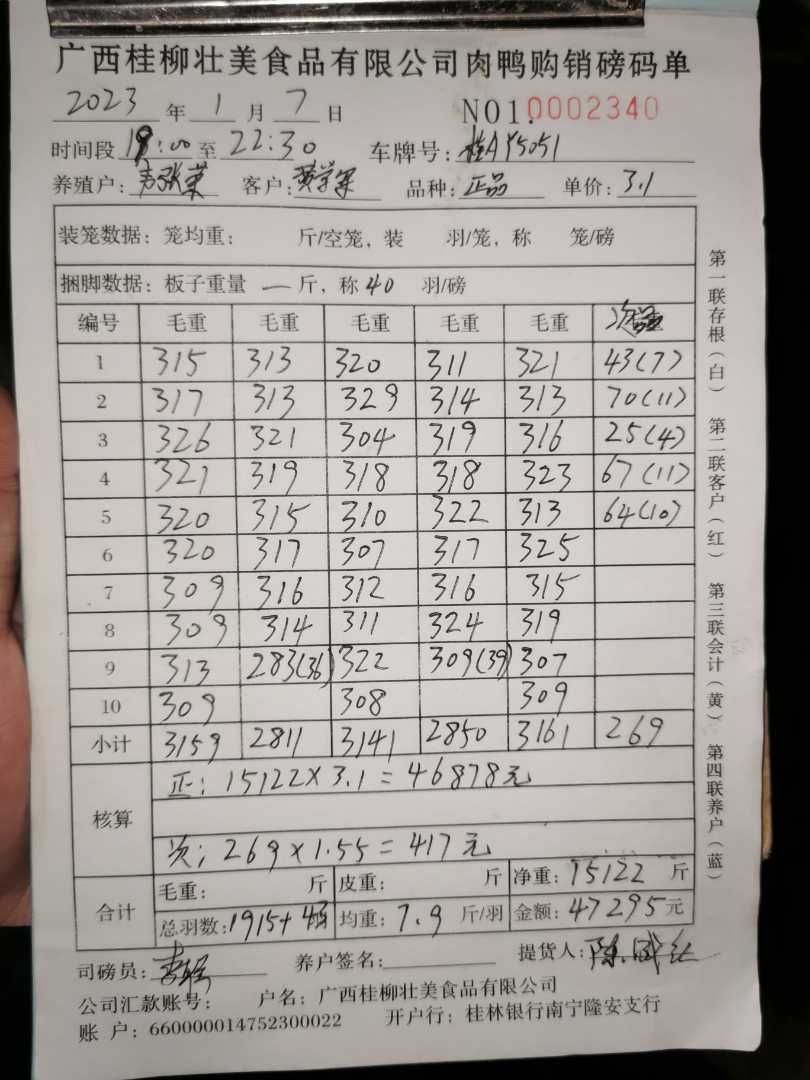 广西桂柳壮美食品有限公司肉鸭购销磅码单
2023年1月7日 NO1.0002340
时间段19:00至22:30 车牌号:桂AY5051
养殖户: 客户: 品种:正品 单价:3.1
装笼数据:笼均重: 斤/空笼,装 羽/笼,称 笼/磅
捆脚数据:板子重量 一斤,称40 羽/磅
编号 毛重 毛重 毛重 毛重 毛重 次品
1 315 313 320 311 321 43(7)
2 317 313 329 314 313 70(11)
3 326 321 304 319 316 25(4)
4 321 319 318 318 323 67(11)
5 320 315 310 322 313 64(10)
6 320 317 307 317 325
7 309 316 312 316 315
8 309 314 311 324 319
9 313 283(36) 322 309(39) 307
10 309 308 309
小计 3159 2811 3141 2850 3161 269
核算
正:15122×3.1=46878元
次:269×1.55=417元
合计
毛重: 斤 皮重: 斤 净重:15122斤
总羽数:1915+ 均重:7.9斤/羽 金额:47295元
司磅员: 养户签名: 提货人:
公司汇款账号: 户名:广西桂柳壮美食品有限公司
账 户:660000014752300022 开户行:桂林银行南宁隆安支行
第一联存根(白) 第二联客户(红) 第三联会计(黄) 第四联养户(蓝)